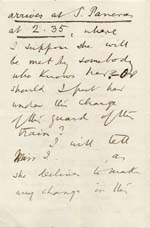 arrives at S. Pancras
at 2.35, where
I suppose she will
be met by somebody
who knows her, or
should I put her
under the charge
of the guard of the
train?
I will tell
Miss I. as
she declines to make
any change in the